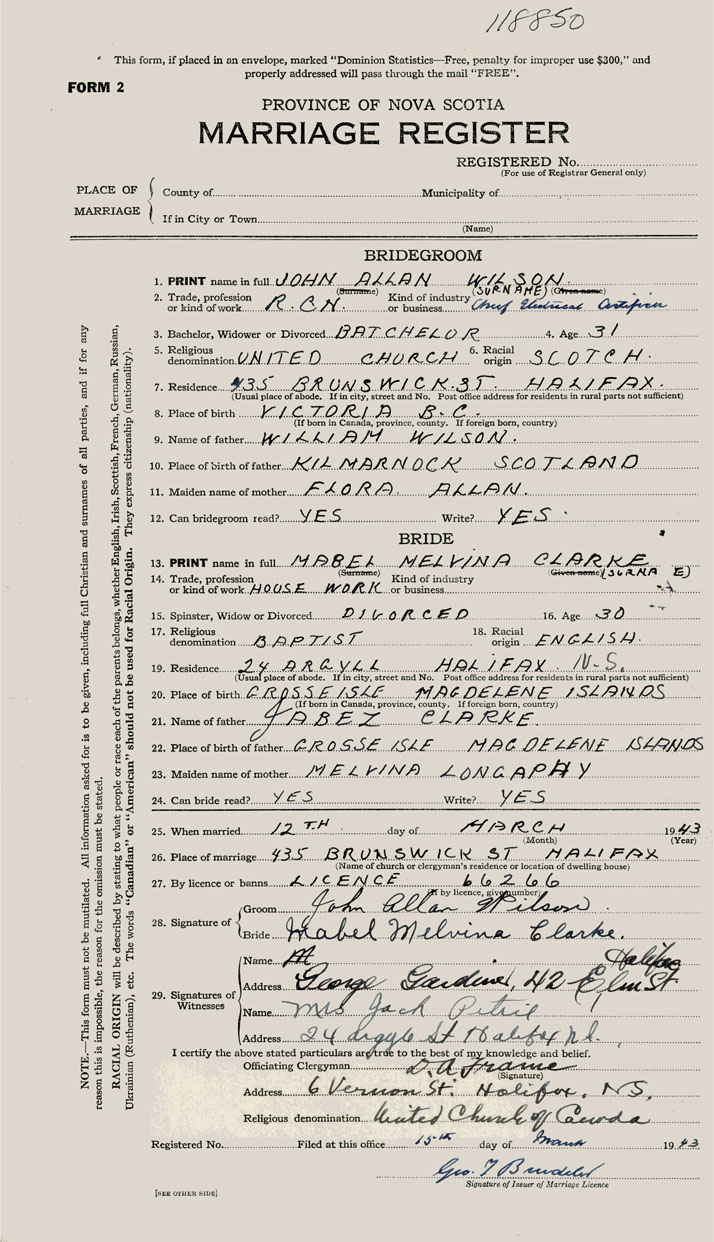 118850
This form, if placed in an envelope, marked "Dominion Statistics—Free, penalty for improper use $300," and
properly addressed will pass through the mail "FREE".
FORM 2
PROVINCE OF NOVA SCOTIA
MARRIAGE REGISTER
REGISTERED No.
(For use of Registrar General only)
PLACE OF MARRIAGE
County of Municipality of
If in City or Town
(Name)
BRIDEGROOM
1. PRINT name in full JOHN ALLAN WILSON.
(Surname) (SURNAME) (Given name)
2. Trade, profession or kind of work R.C.N. Kind of industry or business Chief Electrical Artificer
3. Bachelor, Widower or Divorced BATCHELOR 4. Age 31
5. Religious denomination UNITED CHURCH 6. Racial origin SCOTCH.
7. Residence 435 BRUNSWICK ST. HALIFAX.
(Usual place of abode. If in city, street and No. Post office address for residents in rural parts not sufficient)
8. Place of birth VICTORIA B.C.
(If born in Canada, province, county. If foreign born, country)
9. Name of father WILLIAM WILSON.
10. Place of birth of father KILMARNOCK SCOTLAND
11. Maiden name of mother FLORA ALLAN.
12. Can bridegroom read? YES Write? YES.
BRIDE
13. PRINT name in full MABEL MELVINA CLARKE
(Surname) (Given name) (SURNA E)
14. Trade, profession or kind of work HOUSE WORK Kind of industry or business
15. Spinster, Widow or Divorced DIVORCED 16. Age 30
17. Religious denomination BAPTIST 18. Racial origin ENGLISH.
19. Residence 24 ARGYLL HALIFAX N.S.
(Usual place of abode. If in city, street and No. Post office address for residents in rural parts not sufficient)
20. Place of birth GROSSE ISLE MAGDELENE ISLANDS
(If born in Canada, province, county. If foreign born, country)
21. Name of father JABEZ CLARKE.
22. Place of birth of father GROSSE ISLE MAGDELENE ISLANDS
23. Maiden name of mother MELVINA LONGAPHY
24. Can bride read? YES Write? YES
25. When married 12TH day of MARCH 1943
(Month) (Year)
26. Place of marriage 435 BRUNSWICK ST HALIFAX
(Name of church or clergyman's residence or location of dwelling house)
27. By licence or banns LICENCE 66266
(If by licence, give number)
28. Signature of
Groom John Allan Wilson.
Bride Mabel Melvina Clarke.
29. Signatures of Witnesses
Name Halifax
Address George Gardiner, 42 Elm St
Name Mrs Jack Petrie
Address 24 Argyle St Halifax N.S.
I certify the above stated particulars are true to the best of my knowledge and belief.
Officiating Clergyman D. A. Frame
(Signature)
Address 6 Vernon St. Halifax, N.S.
Religious denomination United Church of Canada
Registered No. Filed at this office 15th day of March 1943
Geo.
Signature of Issuer of Marriage Licence
[SEE OTHER SIDE]
NOTE.—This form must not be mutilated. All information asked for is to be given, including full Christian and surnames of all parties, and if for any
reason this is impossible, the reason for the omission must be stated.
RACIAL ORIGIN will be described by stating to what people or race each of the parents belongs, whether English, Irish, Scottish, French, German, Russian,
Ukrainian (Ruthenian), etc. The words "Canadian" or "American" should not be used for Racial Origin. They express citizenship (nationality).